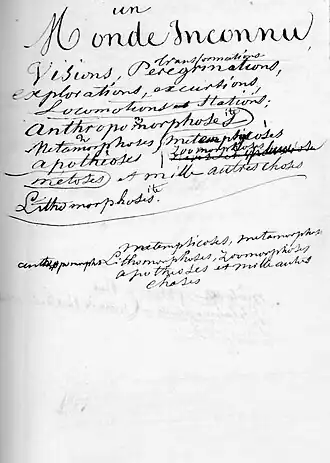 un
Monde Inconnu
transformations
Visions, Peregrinations,
explorations, excursions,
Locomotions et Stations;
Anthropomorphoses
Metamorphoses metempsycoses
apotheoses Zoomorphoses
et mille autres choses
Lithomorphoses.
metempsicoses, metamorp
Lithomorphoses, Zoomorphoses
apotheoses et mille autres
choses